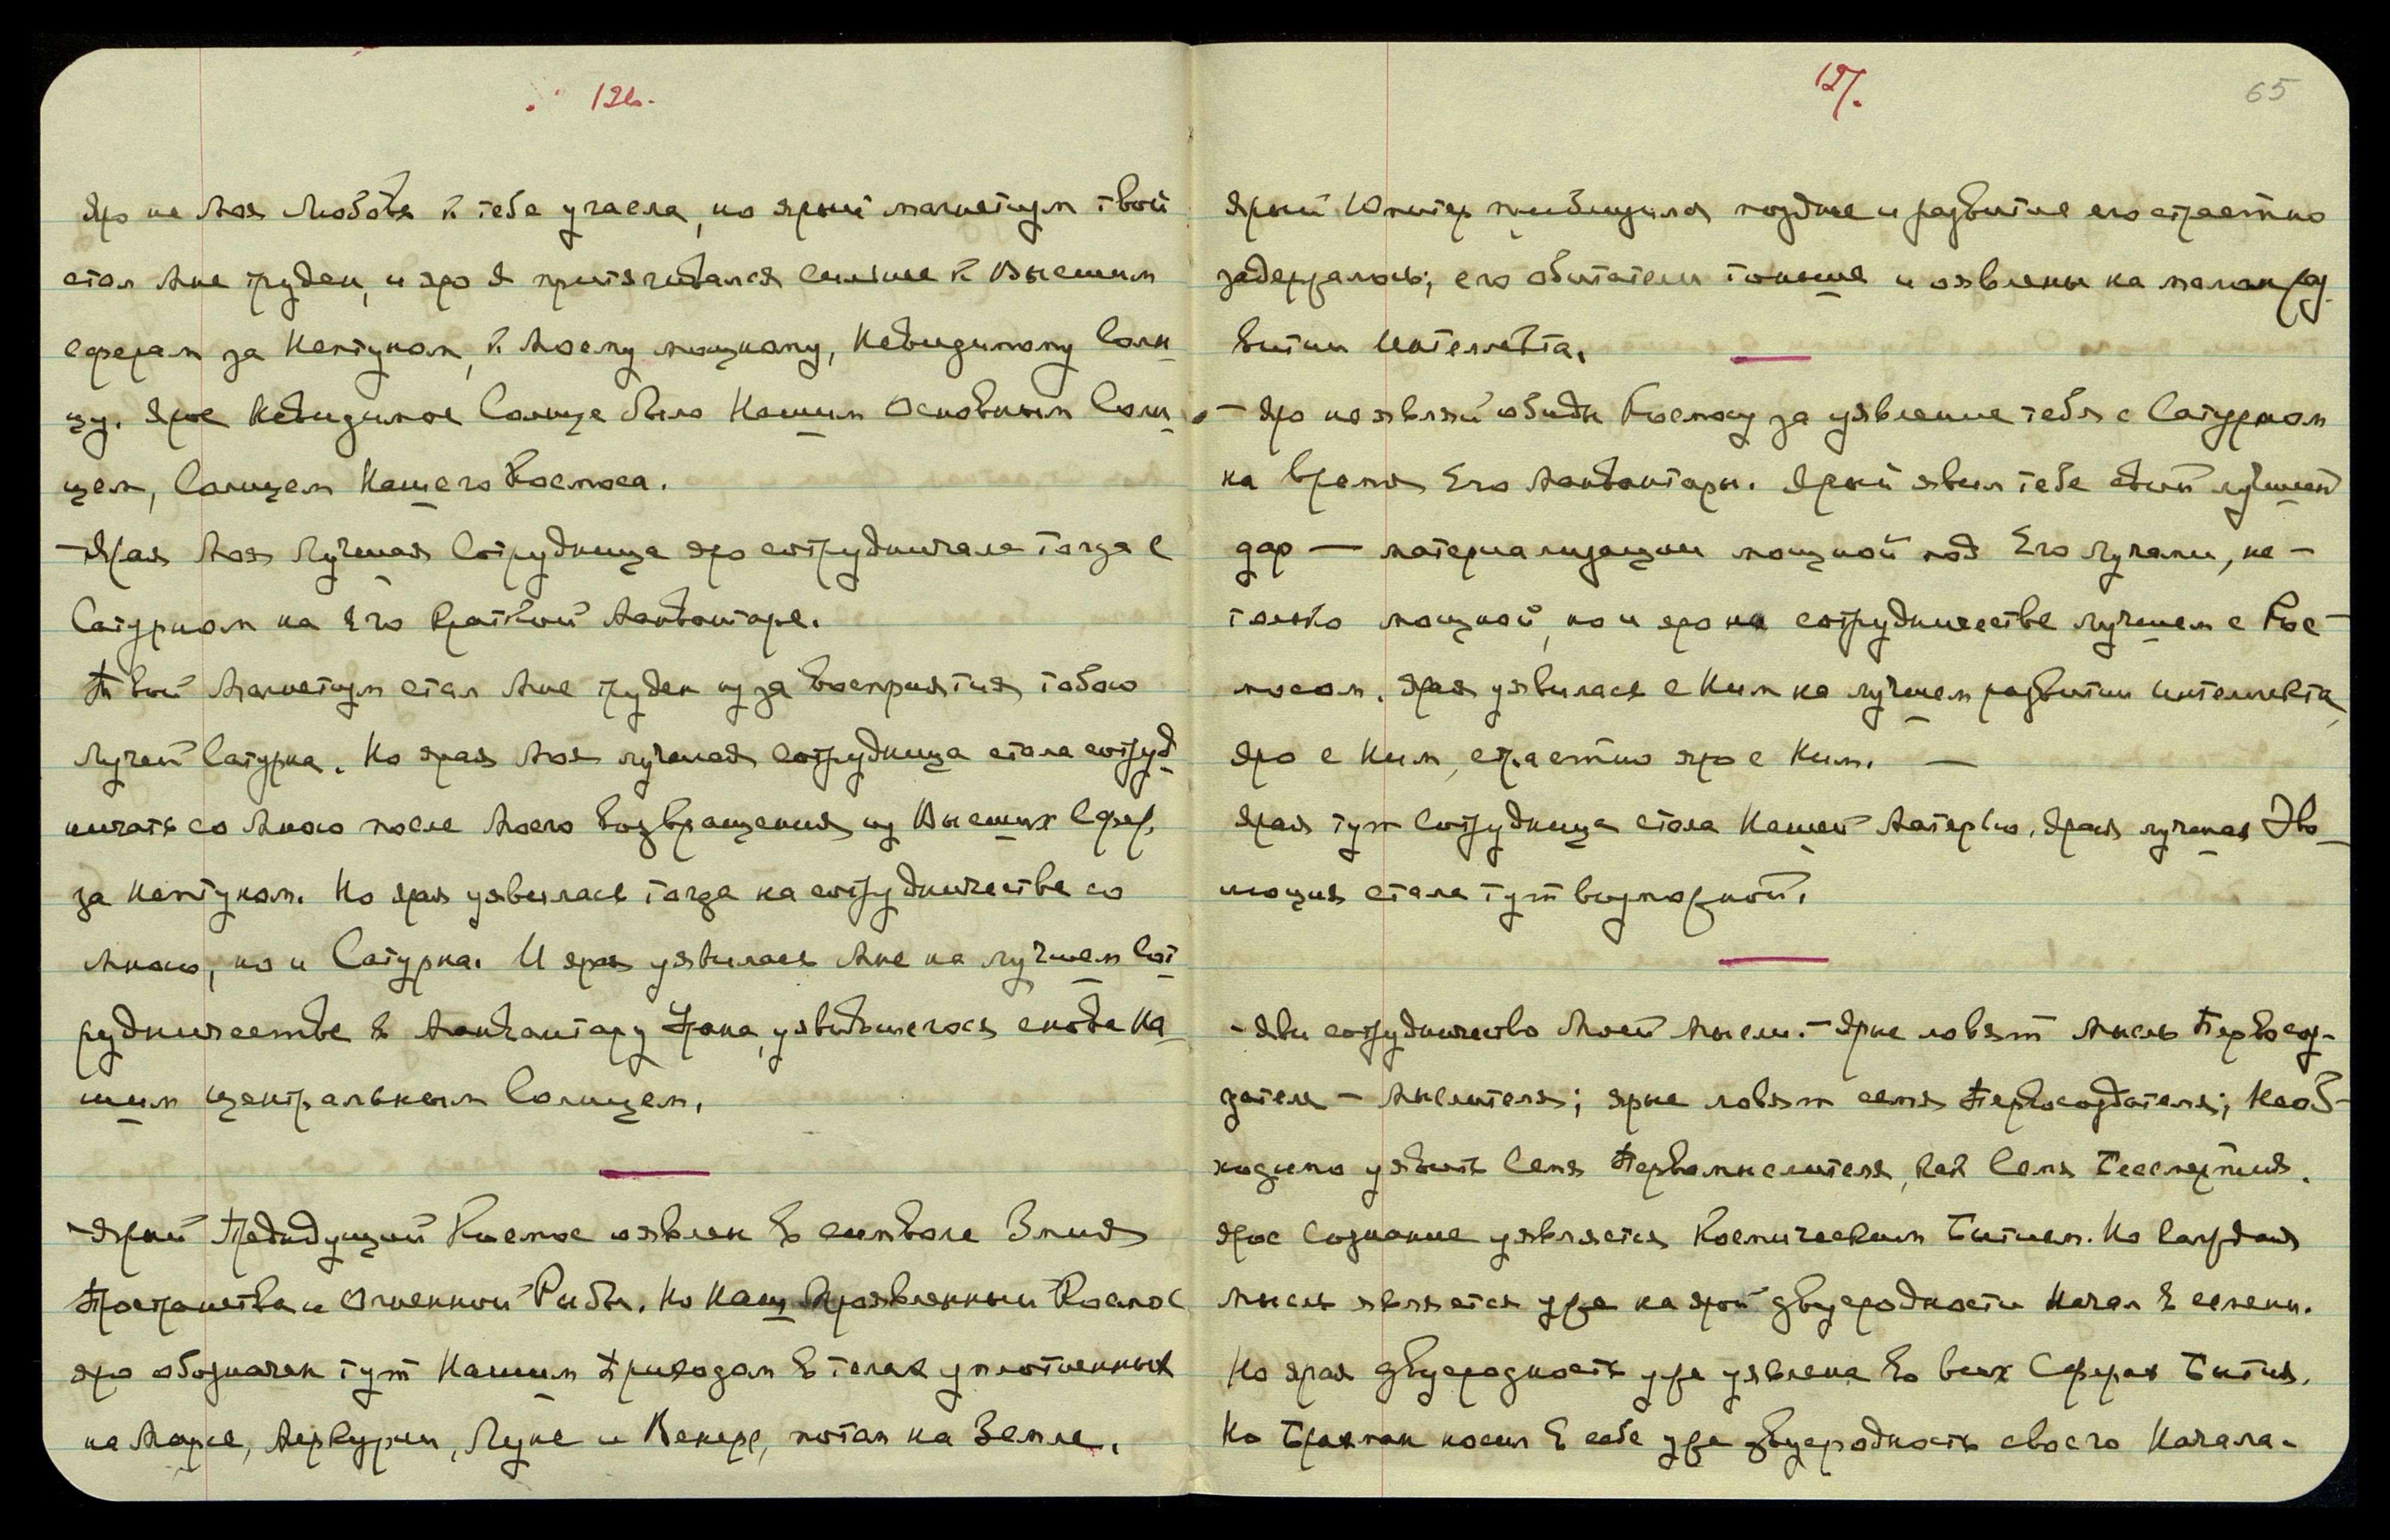 126.
Яро не Моя Любовь к тебе угасла, но ярый магнетизм твой
стал Мне труден, и яро Я притягивался сильнее к Высшим
сферам за Нептуном, к Моему мощному, Невидимому Солн-
цу. Ярое Невидимое Солнце было Нашим Основным Солн-
цем, Солнцем Нашего Космоса.
— Ярая Моя Лучшая Сотрудница яро сотрудничала тогда с
Сатурном на Его Краткой Манвантаре.
Твой Магнетизм стал Мне труден из за восприятия тобою
Лучей Сатурна. Но ярая Моя лучшая сотрудница стала сотруд-
ничать со Мною после Моего возвращения из Высших Сфер,
за Нептуном. Но ярая уявилась тогда на сотрудничестве со
Мною, но и Сатурна. И ярая уявилась Мне на лучшем сот-
рудничестве в Манвантару Урана, уявившегося снова На-
шим центральным Солнцем.
— Ярый Предыдущий Космос оявлен в символе Змия
Пространства и Огненной Рыбы. Но Наш Проявленный Космос
яро обозначен тут Нашим Приходом в телах уплотненных
на Марсе, Меркурии, Луне и Венере, потом на Земле.
127.
65
Ярый Юпитер приблизился позднее и развитие его страстно
задержалось; его обитатели тоньше и оявлены на малом раз-
витии интеллекта.
— Яро не являй обиды Космосу за уявление тебя с Сатурном
на время Его Манвантары. Ярый явил тебе свой лучший
дар — материализации мощной под Его лучами, не —
только мощной, но и яро на сотрудничестве лучшем с Кос-
мосом. Ярая уявилась с Ним на лучшем развитии интеллекта,
яро с Ним, страстно яро с Ним. —
Ярая тут Сотрудница стала Нашей Матерью. Ярая лучшая Эво-
люция стала тут возможной.
- Яви сотрудничество Моей Мысли. — Ярые ловят Мысль Первосоз-
дателя — Мыслителя; ярые ловят семя Первосоздателя; Необ-
ходимо уявить Семя Первомыслителя, как Семя Бессмертия.
Ярое Сознание уявляется Космическим Бытием. Но каждая
мысль является уже на ярой двуродности Начал в семени.
Но ярая двуродность уже уявлена во всех Сферах Бытия.
Но Браман носил в себе уже двуродность своего Начала.